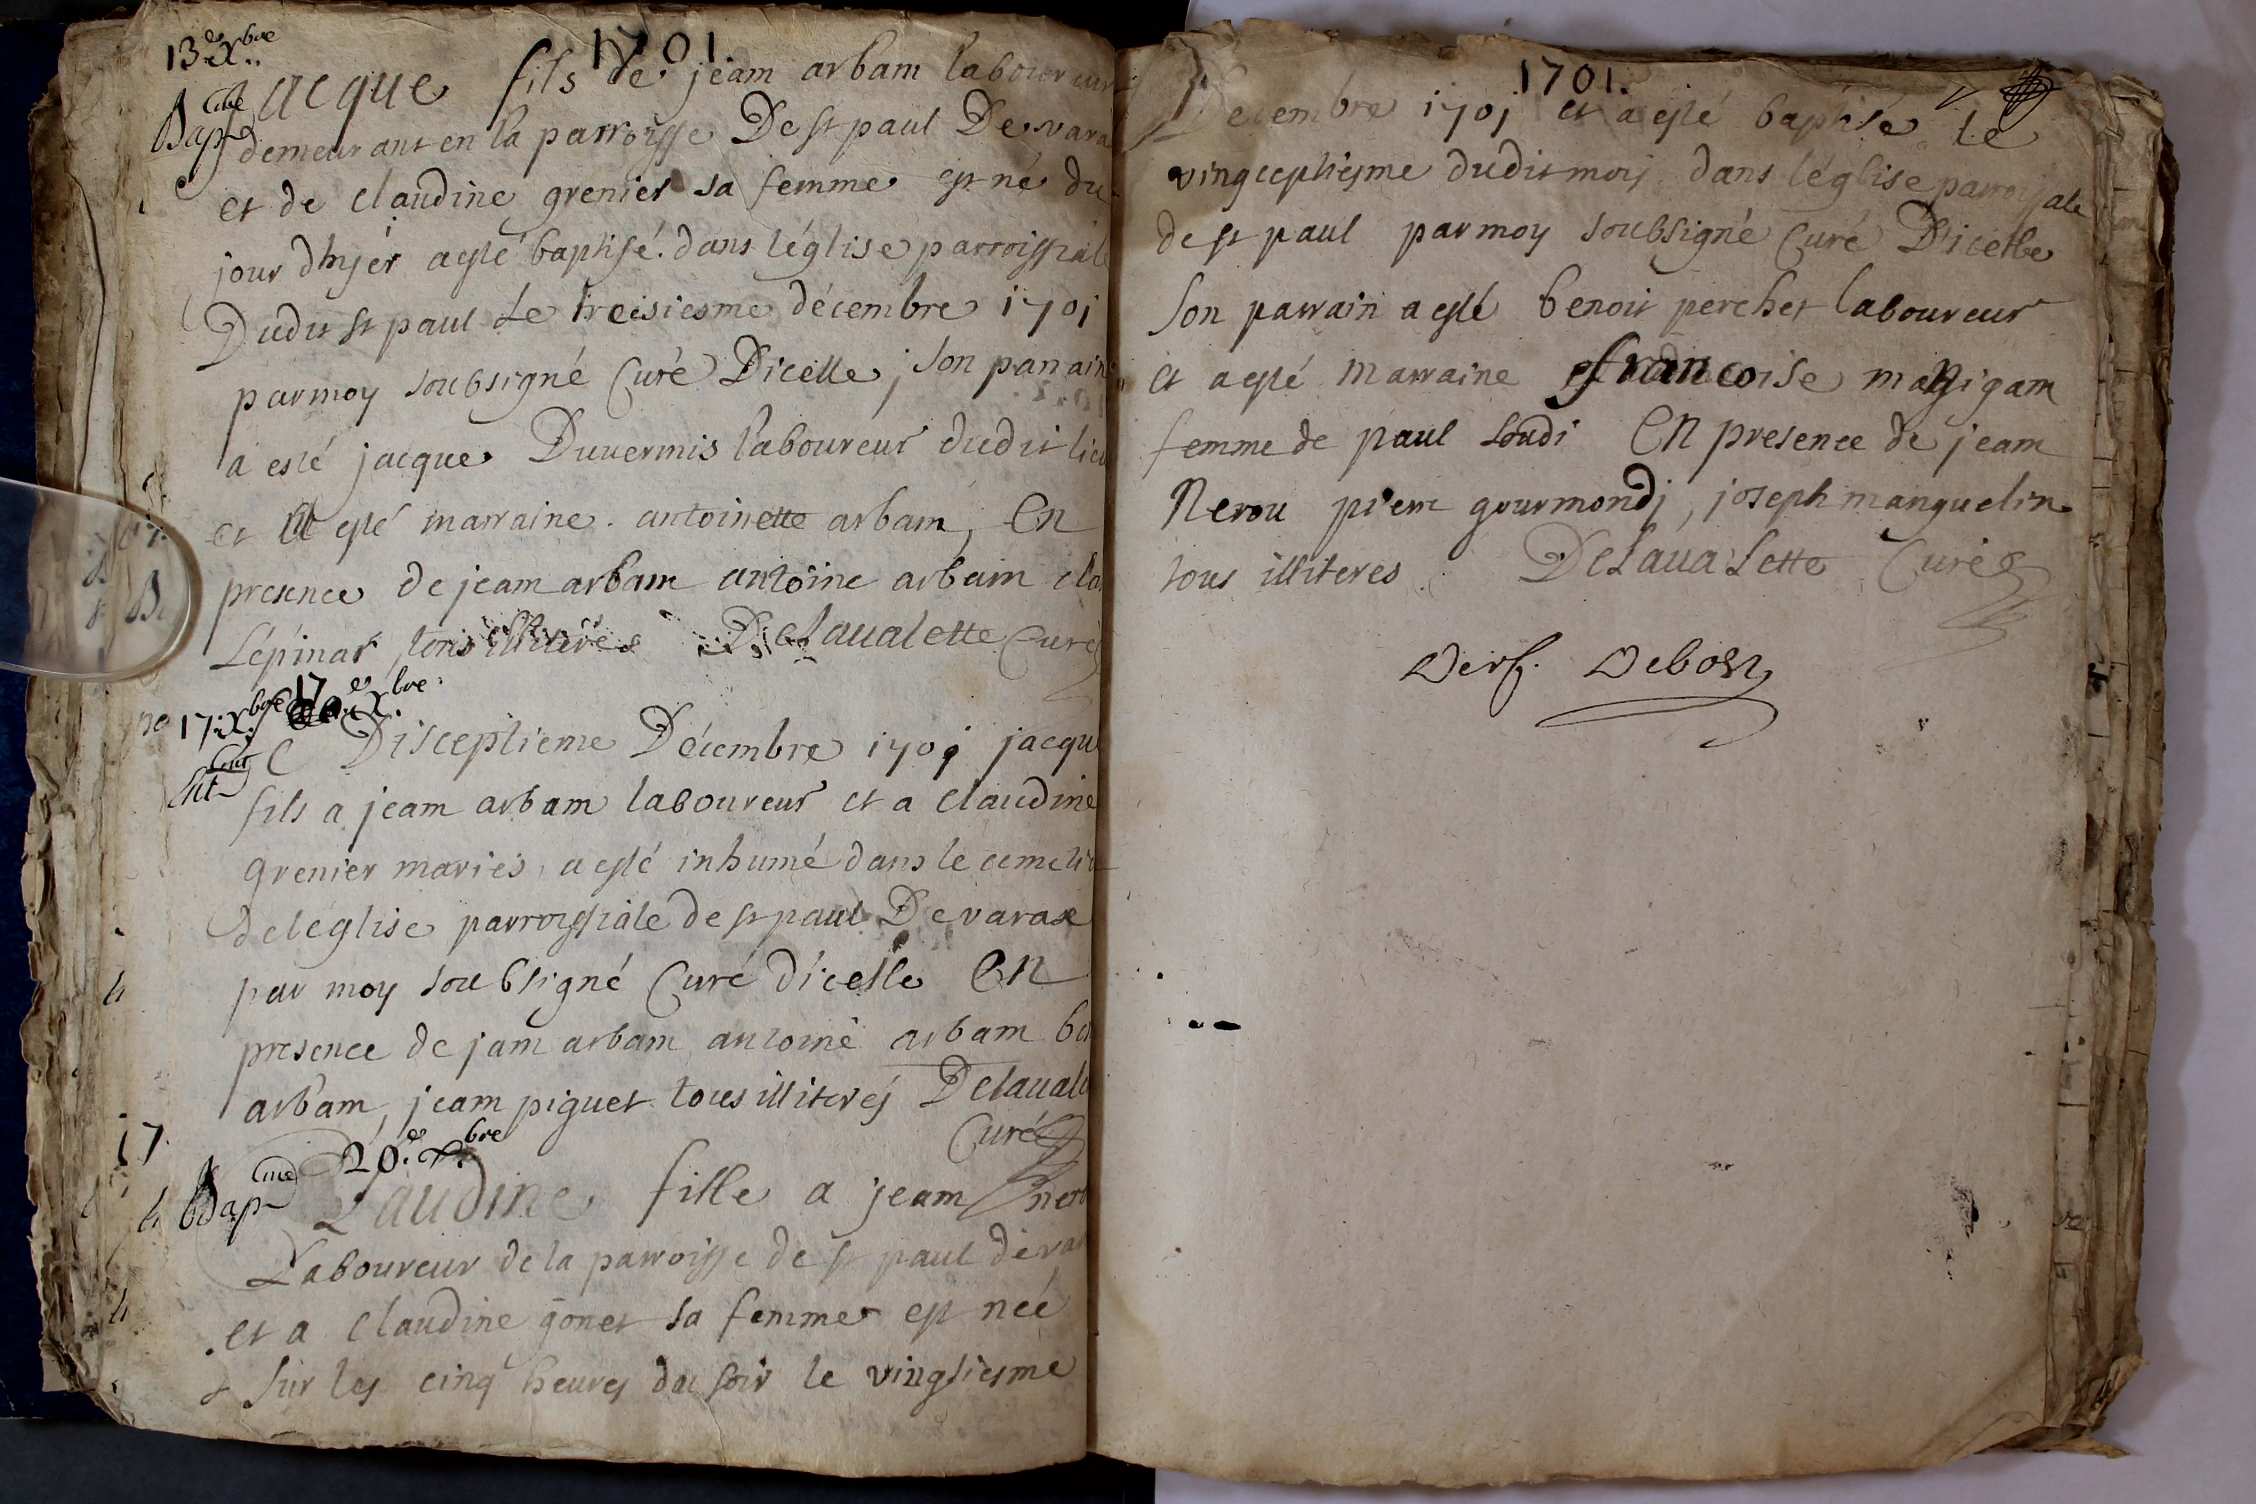 13e Xbre
1701.
Jacque fils de jeam arbam laboureur
Bap
demeurant en la parroisse De st paul De vara
et de claudine grenier sa femme est né du
jour dhyér a esté baptisé. dans léglise parroissiale
Dudit st paul Le treisiesme décembre 1701
par moy soubsigné Curé Dicelle, son parrain
a esté jacque Duvermis laboureur dudit lieu
et a esté marraine. antoinette arbam, En
presence de jeam arbam antoine arbam cla
Lépinar, tous illiteres Delavalette Curé
17. Xbre 17e Xbre
Disceptieme Décembre 1701 jacque
fils a jeam arbam laboureur et a claudine
grenier mariés, a esté inhumé dans le cemetie
de léglise parroissiale de st paul De varax
par moy soubsigné Curé dicelle En
presence de jam arbam antoine arbam be
arbam, jeam piguet tous illiterés Delavale
Curé
17
20e Xbre
Bap
Claudine, fille a jeam nero
Laboureur de la parroisse de st paul de vara
et a claudine gonet sa femme est née
sur les cinq heures du soir le vingtiesme
1701.
Decembre 1701 et a esté baptisé le
vingceptiesme dudit mois dans léglise parroissiale
de st paul par moy soubsigné Curé Dicelle
Son parrain a esté benoit perchet laboureur
et a esté marraine francoise mangigam
femme de paul Loudi En presence de jeam
Nerou pierre gourmondj, joseph manguelin
tous illiteres Delavalette Curé